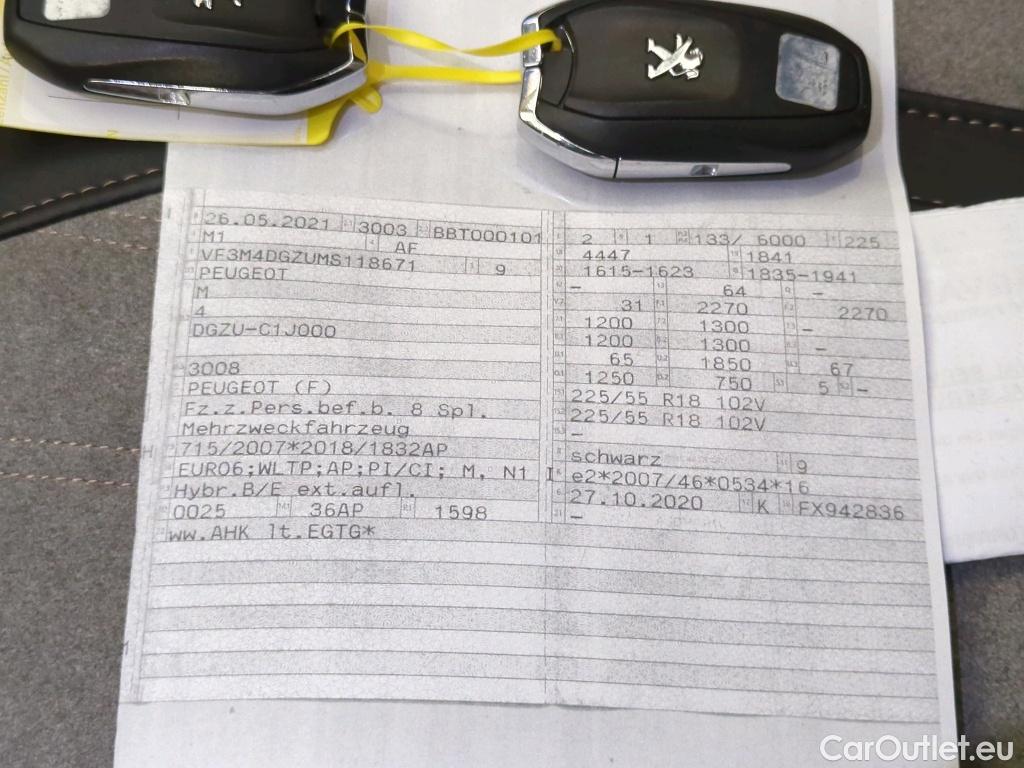 26.05.2021 3003 BBT000101
M1 AF
VF3M4DGZUMS118671 9
PEUGEOT
M
4
DGZU-C1J000
3008
PEUGEOT (F)
Fz.z.Pers.bef.b. 8 Spl.
Mehrzweckfahrzeug
715/2007*2018/1832AP
EURO6;WLTP;AP;PI/CI; M, N1 I
Hybr.B/E ext.aufl.
0025 36AP 1598
ww.AHK lt.EGTG*
2 1 133/ 6000 225
4447 1841
1615-1623 1835-1941
– 64 –
31 2270 2270
1200 1300 –
1200 1300 –
65 1850 67
1250 750 5 –
225/55 R18 102V
225/55 R18 102V
–
schwarz 9
e2*2007/46*0534*16
27.10.2020 K FX942836
–
CarOutlet.eu